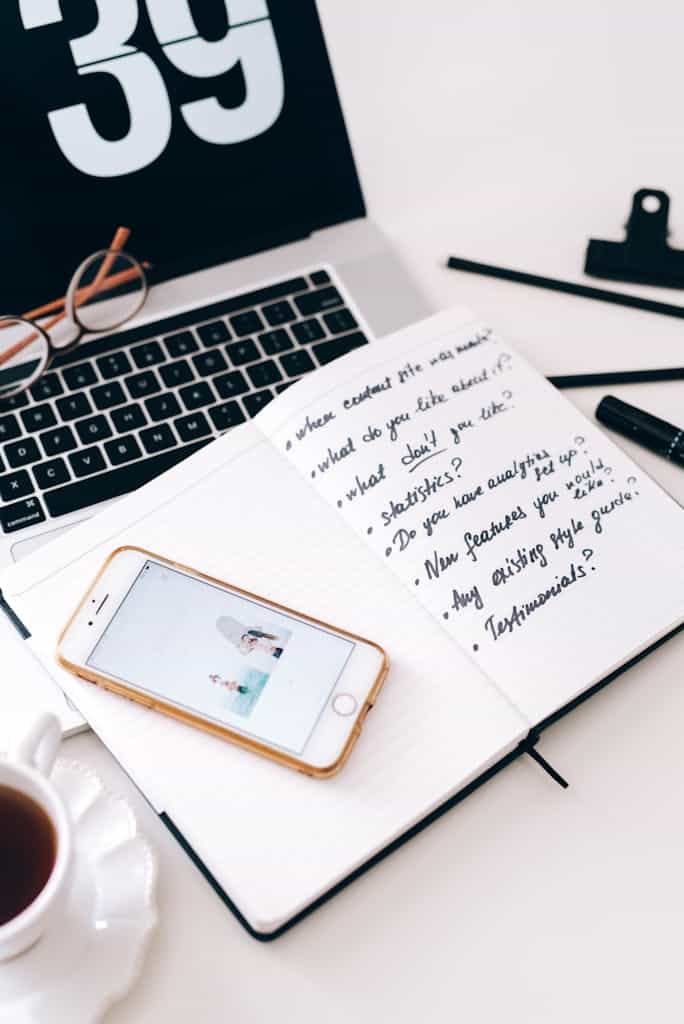 39
• When site was made?
• What do you like about it?
• What don't you like?
• Statistics?
• Do you have analytics set up?
• New features you would
like?
• Any existing style guide?
• Testimonials?
command